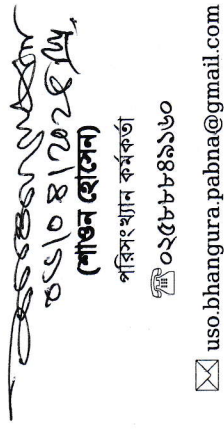 (শাওন হোসেন)
পরিসংখ্যান কর্মকর্তা
☎ ০২৫৮৮৮৪৯১৬০
✉ uso.bhangura.pabna@gmail.com